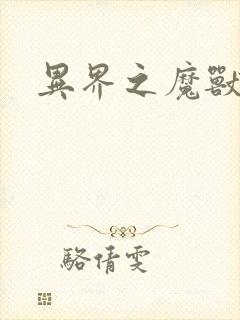 異界之魔獸
駱倩雯